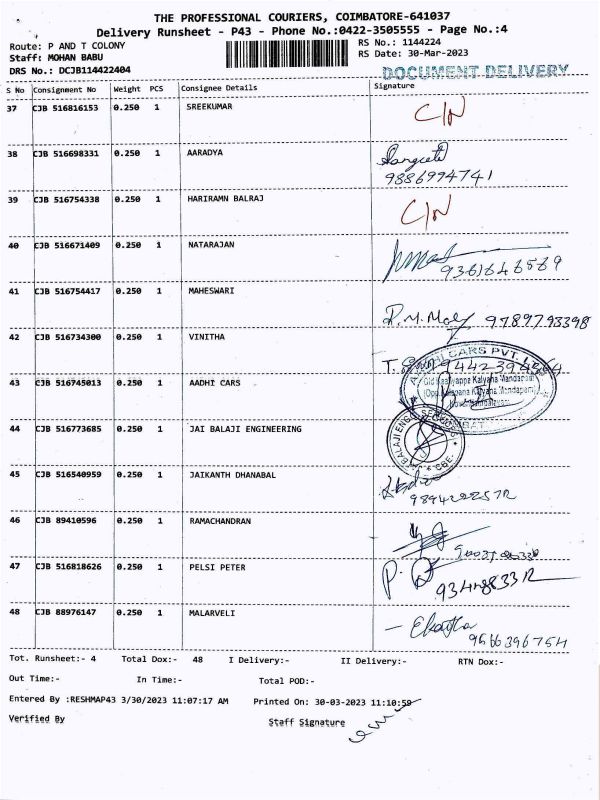 THE PROFESSIONAL COURIERS, COIMBATORE-641037
Delivery Runsheet - P43 - Phone No.:0422-3505555 - Page No.:4
Route: P AND T COLONY RS No.: 1144224
Staff: MOHAN BABU RS Date: 30-Mar-2023
DRS No.: DCJB114422404 DOCUMENT DELIVERY
S No Consignment No Weight PCS Consignee Details Signature
37 CJB 516816153 0.250 1 SREEKUMAR C/N
38 CJB 516698331 0.250 1 AARADYA
9886994741
39 CJB 516754338 0.250 1 HARIRAMN BALRAJ C/N
40 CJB 516671409 0.250 1 NATARAJAN
9361646569
41 CJB 516754417 0.250 1 MAHESWARI
9789793398
42 CJB 516734300 0.250 1 VINITHA
43 CJB 516745013 0.250 1 AADHI CARS AADHI CARS PVT. LTD.
44 CJB 516773685 0.250 1 JAI BALAJI ENGINEERING
45 CJB 516540959 0.250 1 JAIKANTH DHANABAL
46 CJB 89410596 0.250 1 RAMACHANDRAN
47 CJB 516818626 0.250 1 PELSI PETER
48 CJB 88976147 0.250 1 MALARVELI
9566396754
Tot. Runsheet:- 4 Total Dox:- 48 I Delivery:- II Delivery:- RTN Dox:-
Out Time:- In Time:- Total POD:-
Entered By :RESHMAP43 3/30/2023 11:07:17 AM Printed On: 30-03-2023 11:10:59
Verified By Staff Signature